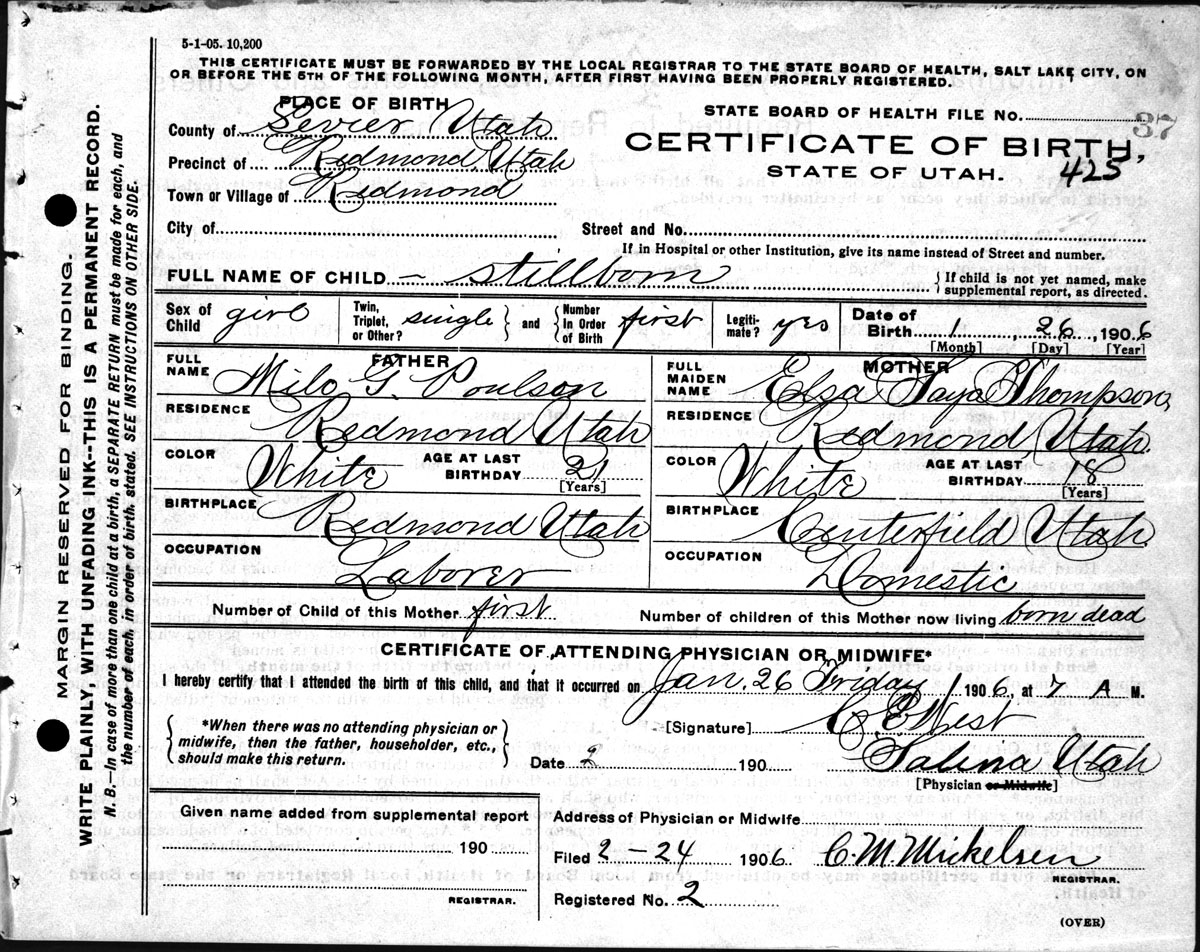 5-1-05. 10,200
THIS CERTIFICATE MUST BE FORWARDED BY THE LOCAL REGISTRAR TO THE STATE BOARD OF HEALTH, SALT LAKE CITY, ON
OR BEFORE THE 5TH OF THE FOLLOWING MONTH, AFTER FIRST HAVING BEEN PROPERLY REGISTERED.
PLACE OF BIRTH
County of Sevier Utah
Precinct of Redmond, Utah
Town or Village of Redmond
STATE BOARD OF HEALTH FILE No. 37
CERTIFICATE OF BIRTH,
STATE OF UTAH. 425
City of Street and No.
If in Hospital or other Institution, give its name instead of Street and number.
FULL NAME OF CHILD – stillborn { If child is not yet named, make
supplemental report, as directed.
Sex of Child girl Twin, Triplet, or Other? single } and { Number In Order of Birth first Legiti-mate? yes Date of Birth 1 26, 1906
[Month] [Day] [Year]
FATHER
FULL NAME Milo G. Poulson
RESIDENCE Redmond Utah
COLOR White AGE AT LAST BIRTHDAY 21
[Years]
BIRTHPLACE Redmond Utah
OCCUPATION Laborer
MOTHER
FULL MAIDEN NAME Elsa Taya Thompson
RESIDENCE Redmond, Utah.
COLOR White AGE AT LAST BIRTHDAY 18
[Years]
BIRTHPLACE Centerfield Utah
OCCUPATION Domestic
Number of Child of this Mother first Number of children of this Mother now living born dead
CERTIFICATE OF ATTENDING PHYSICIAN OR MIDWIFE*
I hereby certify that I attended the birth of this child, and that it occurred on Jan. 26 Friday, 1906, at 7 A M.
{ *When there was no attending physician or
midwife, then the father, householder, etc.,
should make this return. }
[Signature] C E West
Date 2 190 Salina Utah
[Physician or Midwife]
Given name added from supplemental report
190
REGISTRAR.
Address of Physician or Midwife
Filed 2-24 1906 C. M. Mickelsen
REGISTRAR.
Registered No. 2
(OVER)
MARGIN RESERVED FOR BINDING.
WRITE PLAINLY, WITH UNFADING INK---THIS IS A PERMANENT RECORD.
N. B.—In case of more than one child at a birth, a SEPARATE RETURN must be made for each, and
the number of each, in order of birth, stated. SEE INSTRUCTIONS ON OTHER SIDE.